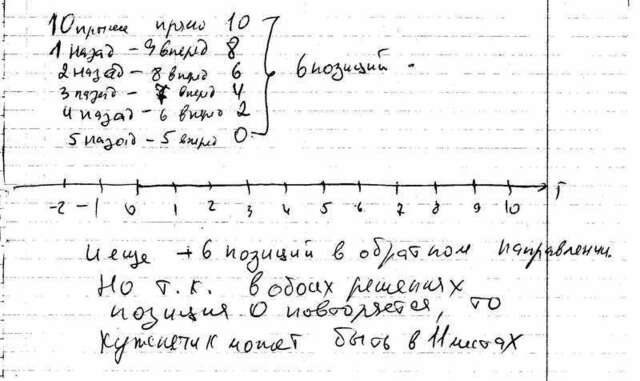 10 прыжк прямо 10
1 назад – 9 вперёд 8
2 назад – 8 вперёд 6
3 назад – 7 вперёд 4
4 назад – 6 вперёд 2
5 назад – 5 вперёд 0
6 позиций
-2 -1 0 1 2 3 4 5 6 7 8 9 10
И еще + 6 позиций в обратном направлении.
Но т.к. в обоих решениях
позиция 0 повторяется, то
Кузнечик может быть в 11 местах